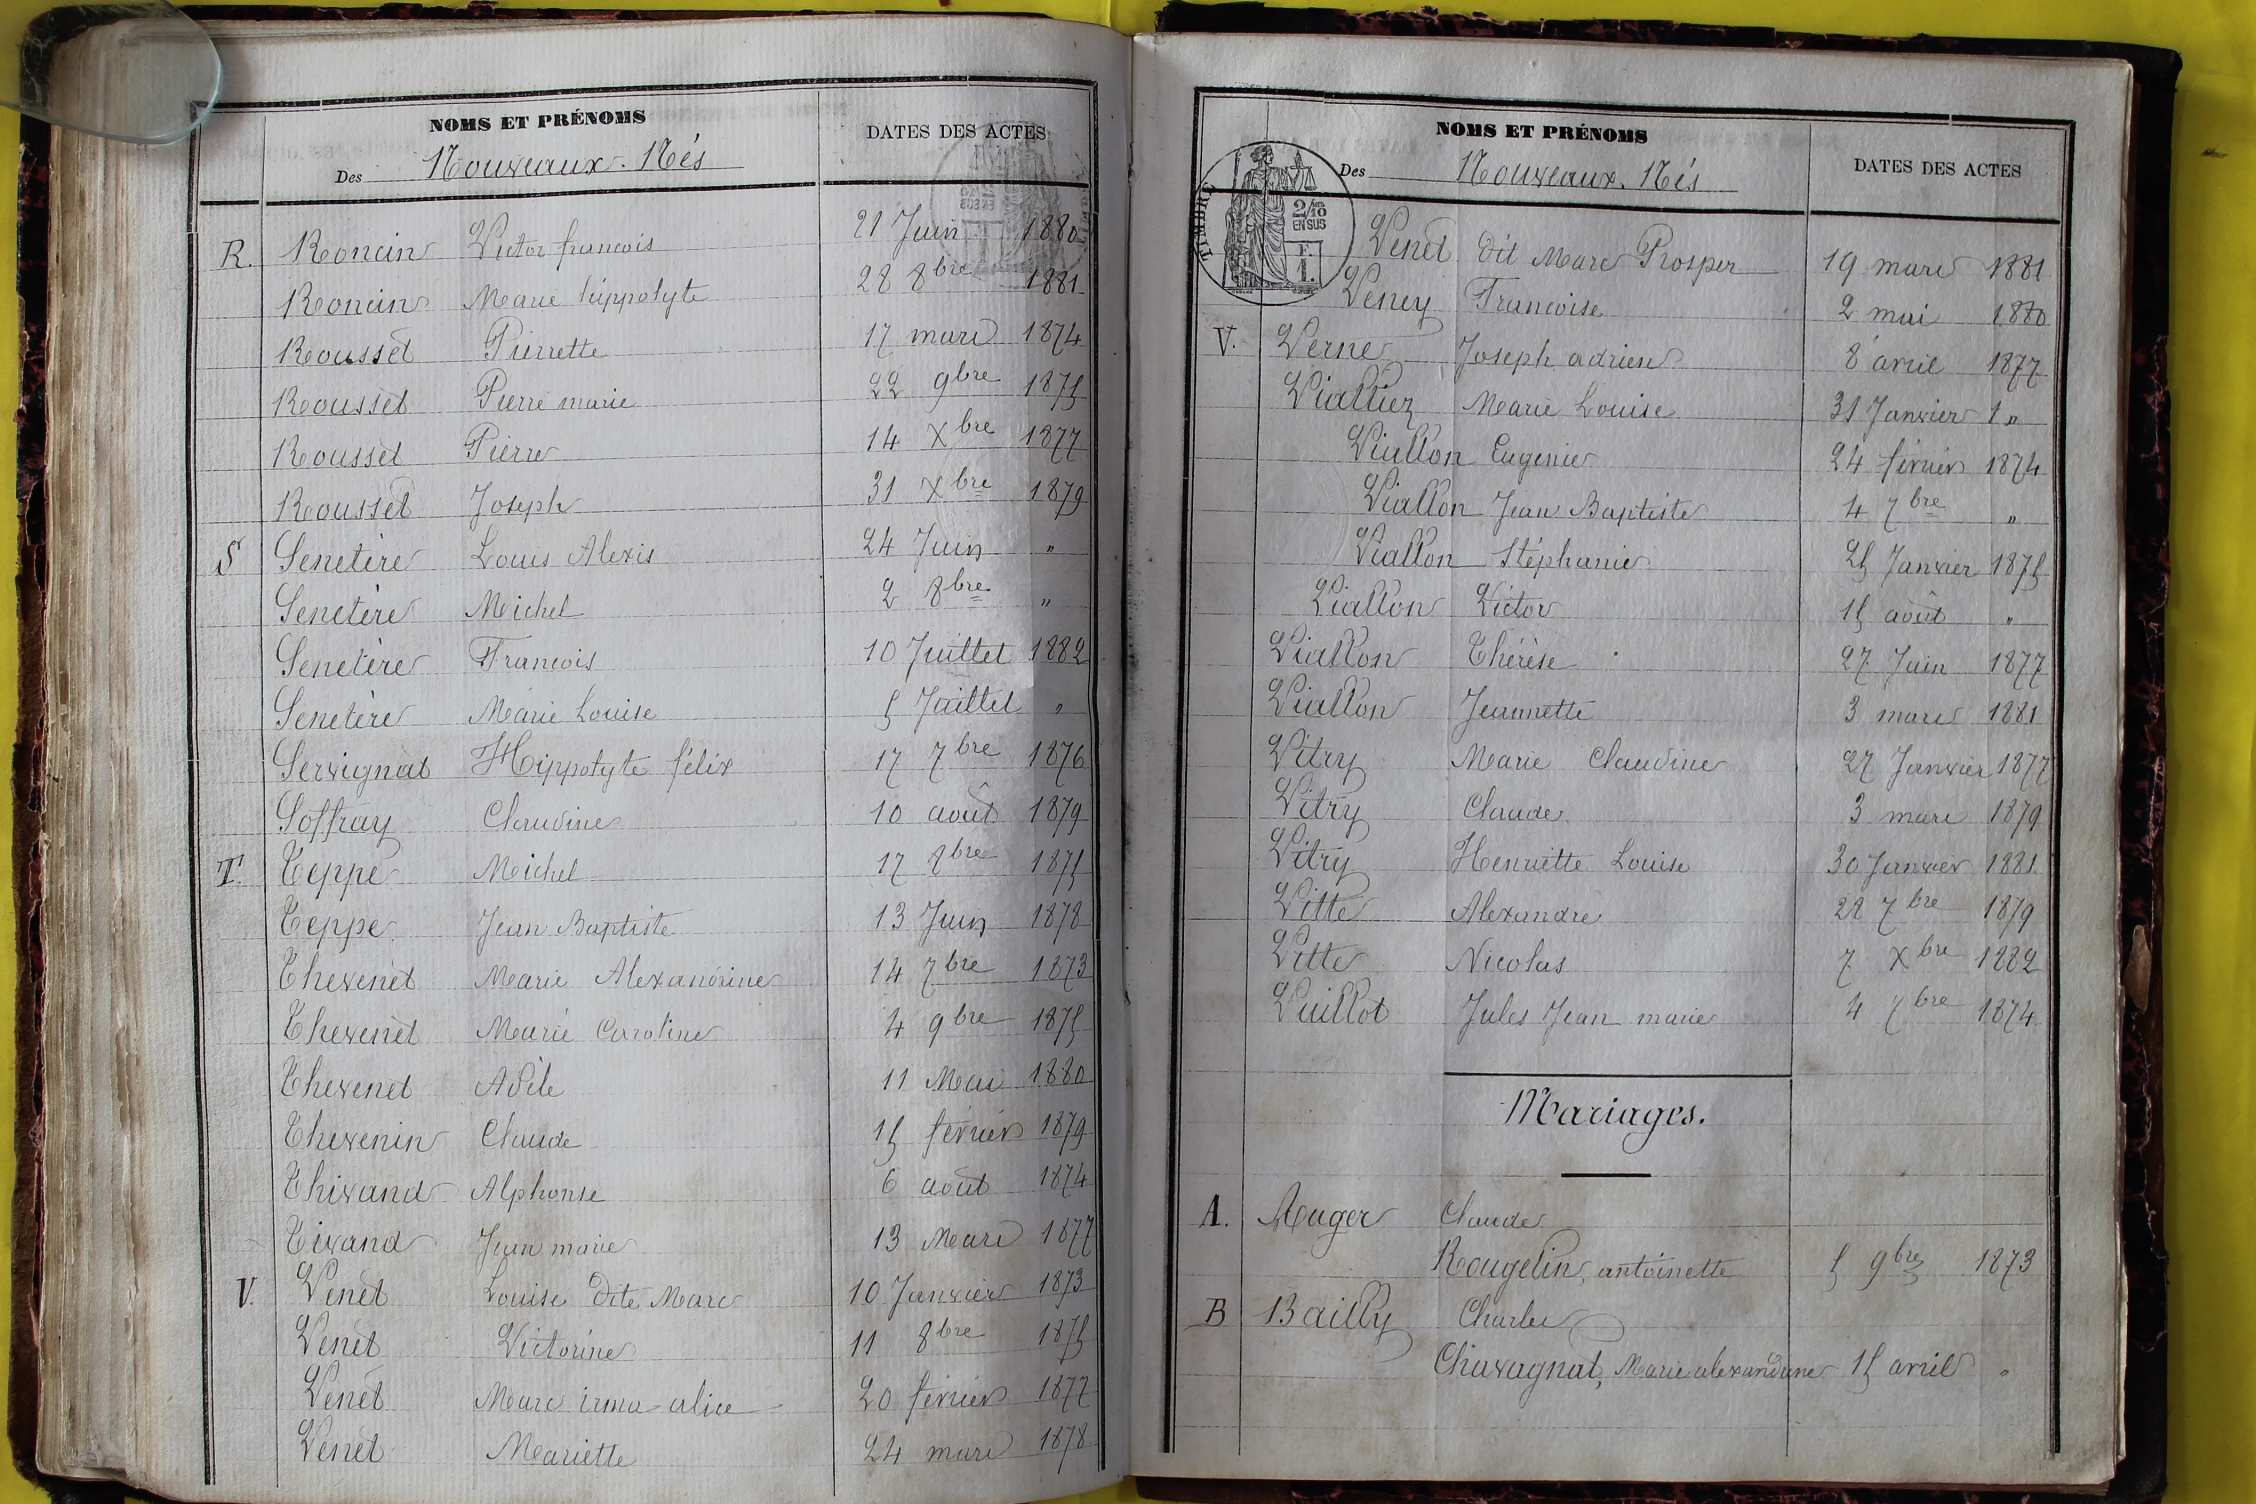 NOMS ET PRÉNOMS
DATES DES ACTES
Des Nouveaux-Nés
R. Roncin Victor francois 21 Juin 1880
Roncin Marie hippolyte 28 8bre 1881
Rousset Pierrette 17 mars 1874
Rousset Pierre marie 22 9bre 1875
Rousset Pierre 14 Xbre 1877
Rousset Joseph 31 Xbre 1879
S Senetère Louis Alexis 24 Juin "
Senetère Michel 2 8bre "
Senetère Francois 10 Juillet 1882
Senetère Marie Louise 5 Juillet "
Servignat Hippolyte félix 17 7bre 1876
Soffray Claudine 10 août 1879
T. Teppe Michel 17 8bre 1875
Teppe Jean Baptiste 13 Juin 1878
Thevenet Marie Alexandrine 14 7bre 1873
Thevenet Marie Caroline 4 9bre 1875
Thevenet Adèle 11 Mai 1880
Thevenin Claude 15 février 1879
Thivand Alphonse 6 août 1874
Tivand Jean marie 13 Mars 1877
V. Venet Louise dite Marc 10 Janvier 1873
Venet Victorine 11 8bre 1875
Venet Marc irma alice 20 février 1877
Venet Mariette 24 mars 1878
NOMS ET PRÉNOMS
DATES DES ACTES
Des Nouveaux-Nés
TIMBRE
2/10
EN SUS
F.
1.
Venet dit Marc Prosper 19 mars 1881
Veney Francoise 2 mai 1880
V. Verne Joseph adrien 8 avril 1877
Viallier Marie Louise 31 Janvier 1 "
Viallon Eugenie 24 février 1874
Viallon Jean Baptiste 4 7bre "
Viallon Stéphanie 25 Janvier 1875
Viallon Victor 15 août "
Viallon Thérèse 27 Juin 1877
Viallon Jeannette 3 mars 1881
Vitry Marie Claudine 27 Janvier 1877
Vitry Claude 3 mars 1879
Vitry Henriette Louise 30 Janvier 1881.
Vitte Alexandre 22 7bre 1879
Vitte Nicolas 7 Xbre 1882
Vuillot Jules Jean marie 4 7bre 1874
Mariages.
A. Auger Claude
Rougelin, antoinette 5 9bre 1873
B Bailly Charles
Chavagnat, Marie alexandrine 15 avril "